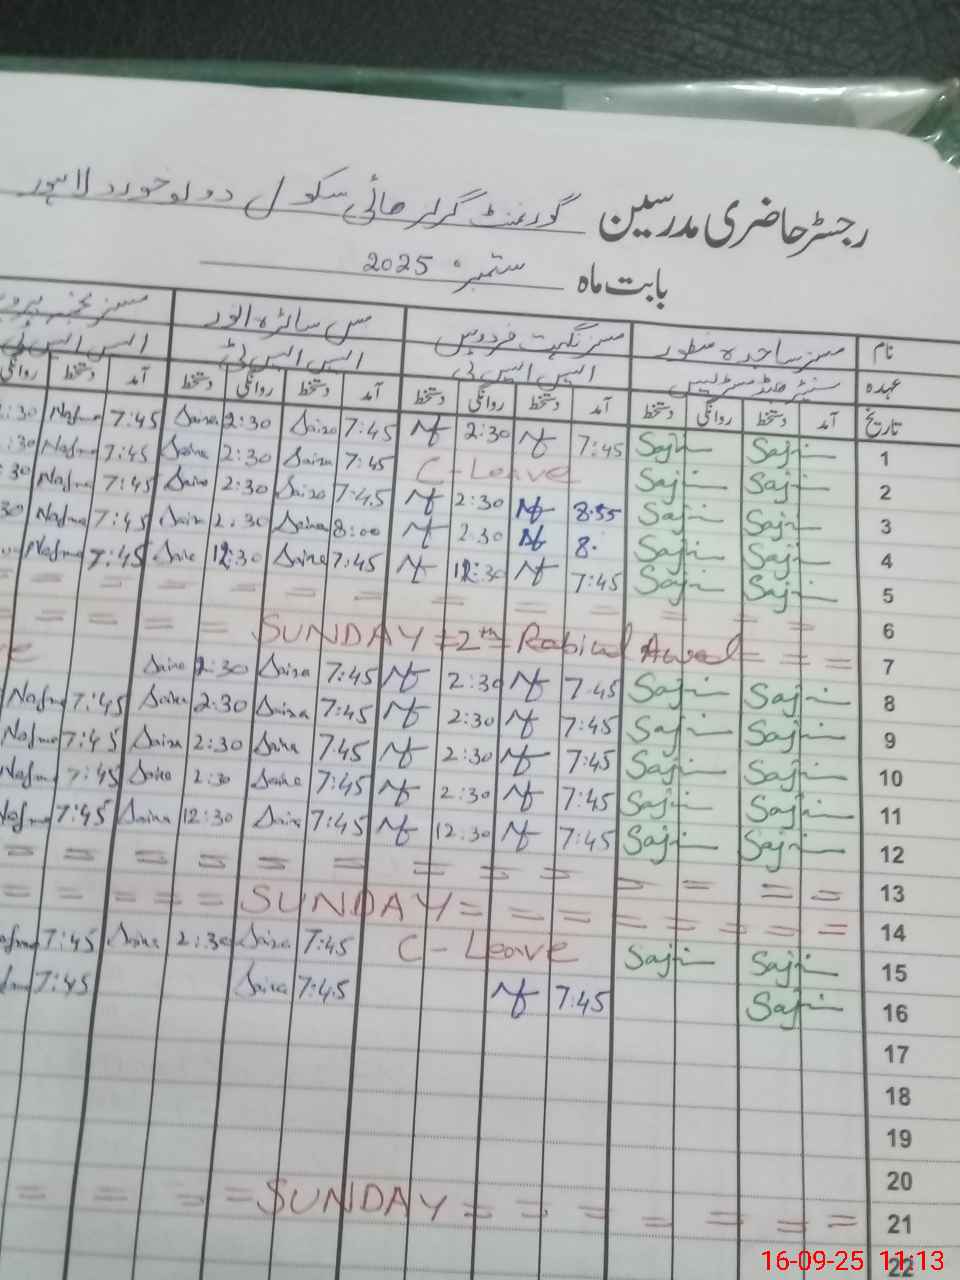 رجسٹر حاضری مدرسین گورنمنٹ گرلز ھائی سکول دولو خورد لاہور
بابت ماہ ستمبر 2025
نام مسز ساجدہ منظور مسز نگہت فردوس مس سائرہ انور مسز نجمہ
عہدہ سینئر ھیڈ مسٹریس ایس ایس ٹی ایس ایس ٹی ایس ایس ٹی
تاریخ آمد دستخط روانگی دستخط آمد دستخط روانگی دستخط آمد دستخط روانگی دستخط آمد دستخط روانگی
1 Saji Saji 7:45 Nf 2:30 Nf 7:45 Saira 2:30 Saira 7:45 Najma :30
2 Saji Saji C-Leave 7:45 Saira 2:30 Saira 7:45 Najma :30
3 Saji Saji 8:55 Nf 2:30 Nf 7:45 Saira 2:30 Saira 7:45 Najma 30
4 Saji Saji 8. Nf 2:30 Nf 8:00 Saira 2:30 Saira 7:45 Najma 30
5 Saji Saji 7:45 Nf 12:30 Nf 7:45 Saira 12:30 Saira 7:45 Najma
6 = = = = = = = =
7 = = = SUNDAY = 12th Rabiul Awal = = =
8 Saji Saji 7:45 Nf 2:30 Nf 7:45 Saira 2:30 Saira
9 Saji Saji 7:45 Nf 2:30 Nf 7:45 Saira 2:30 Saira 7:45 Najma
10 Saji Saji 7:45 Nf 2:30 Nf 7:45 Saira 2:30 Saira 7:45 Najma
11 Saji Saji 7:45 Nf 2:30 Nf 7:45 Saira 2:30 Saira 7:45 Najma
12 Saji Saji 7:45 Nf 12:30 Nf 7:45 Saira 12:30 Saira 7:45 Najma
13 = = = = = = = = = = = = =
14 = = = = = SUNDAY = = = = = = = =
15 Saji Saji C-Leave 7:45 Saira 2:30 Saira 7:45
16 Saji 7:45 Nf 7:45 Saira 7:45
17
18
19
20
21 = = = = SUNDAY = = = = = = =
22
16-09-25 11:13